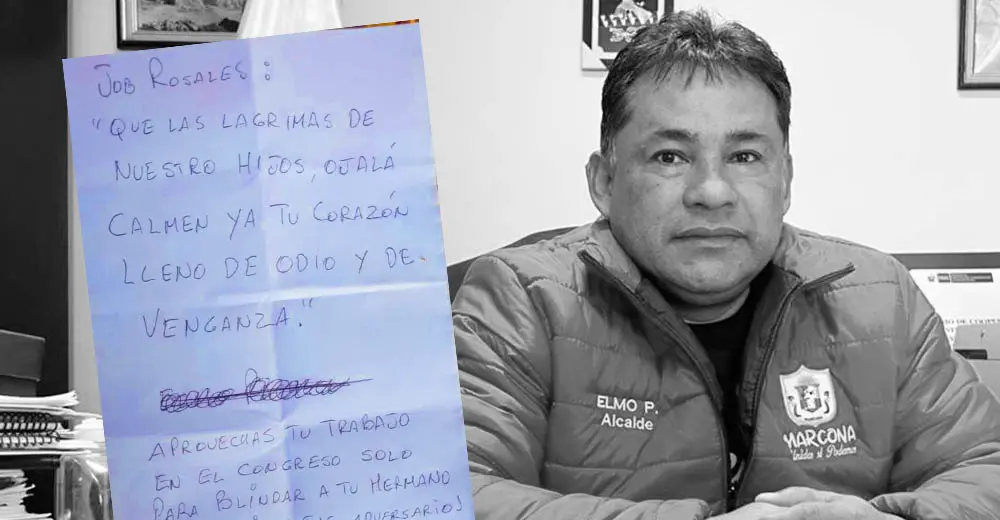 JOB ROSALES:
"QUE LAS LAGRIMAS DE
NUESTRO HIJOS, OJALÁ
CALMEN YA TU CORAZÓN
LLENO DE ODIO Y DE
VENGANZA."
APROVECHAS TU TRABAJO
EN EL CONGRESO SOLO
PARA BLINDAR A TU HERMANO
ADVERSARIOS
ELMO P.
Alcalde
MARCONA
Unidos sí Podemos